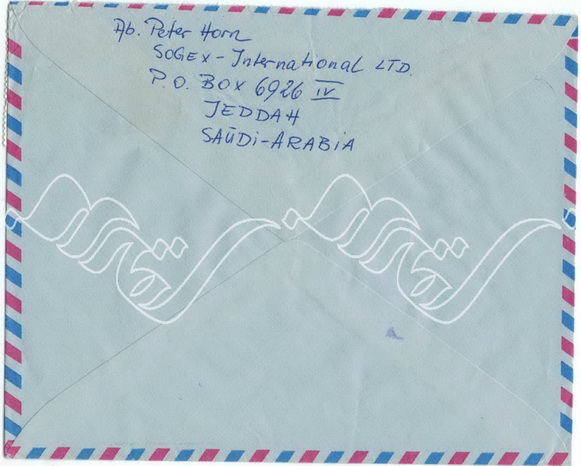 Ab. Peter Horn
SOGEX - International LTD.
P.O. BOX 6926 IV
JEDDAH
SAUDI-ARABIA